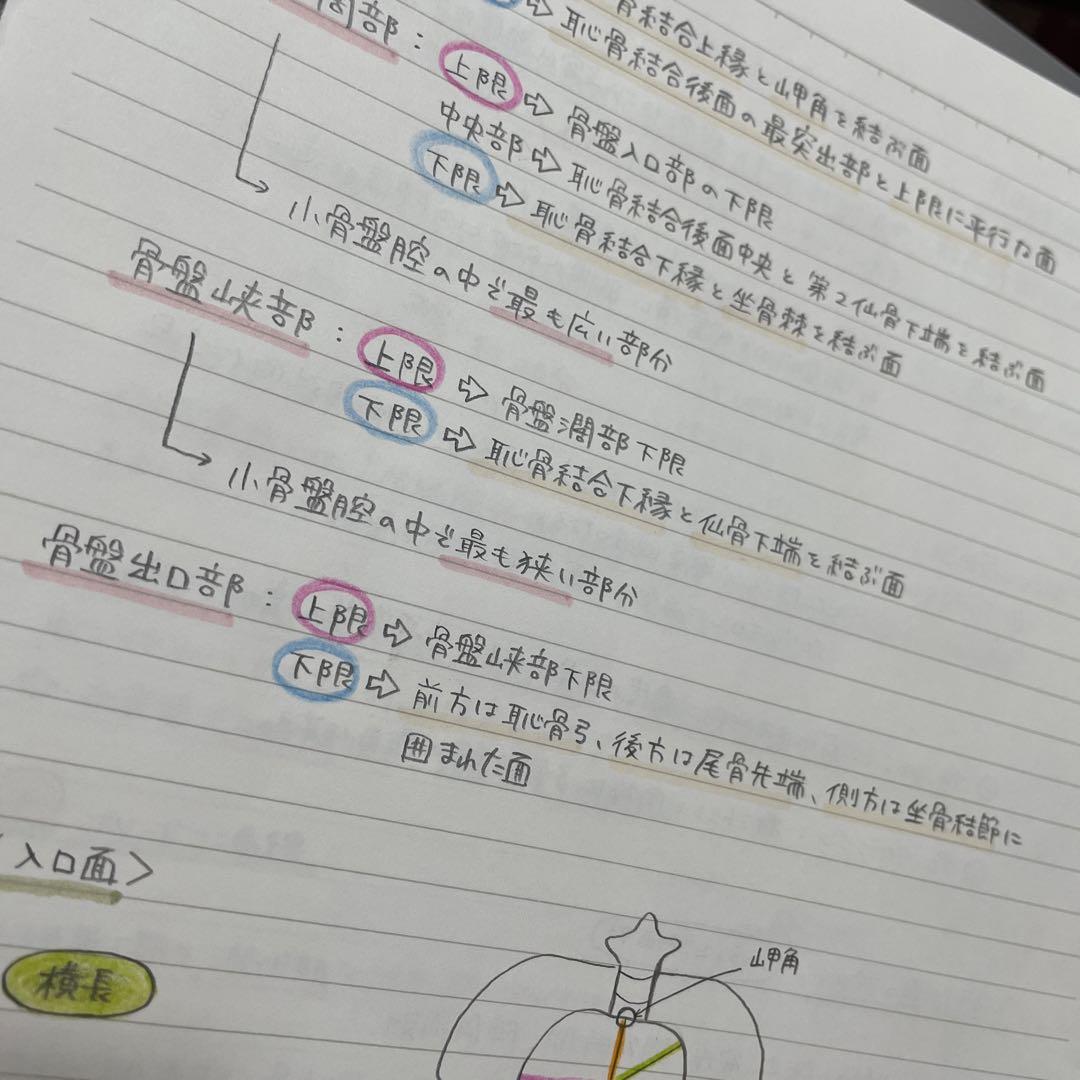 骨結合上縁と岬角を結ぶ面
⇨ 恥骨結合後面の最突出部と上限に平行な面
部:上限 ⇨ 骨盤入口部の下限
中央部 ⇨ 恥骨結合後面中央と第2仙骨下端を結ぶ面
下限 ⇨ 恥骨結合下縁と坐骨棘を結ぶ面
小骨盤腔の中で最も広い部分
骨盤峡部:上限 ⇨ 骨盤濶部下限
下限 ⇨ 恥骨結合下縁と仙骨下端を結ぶ面
小骨盤腔の中で最も狭い部分
骨盤出口部:上限 ⇨ 骨盤峡部下限
下限 ⇨ 前方は恥骨弓、後方は尾骨先端、側方は坐骨結節に
囲まれた面
入口面>
横長
岬角